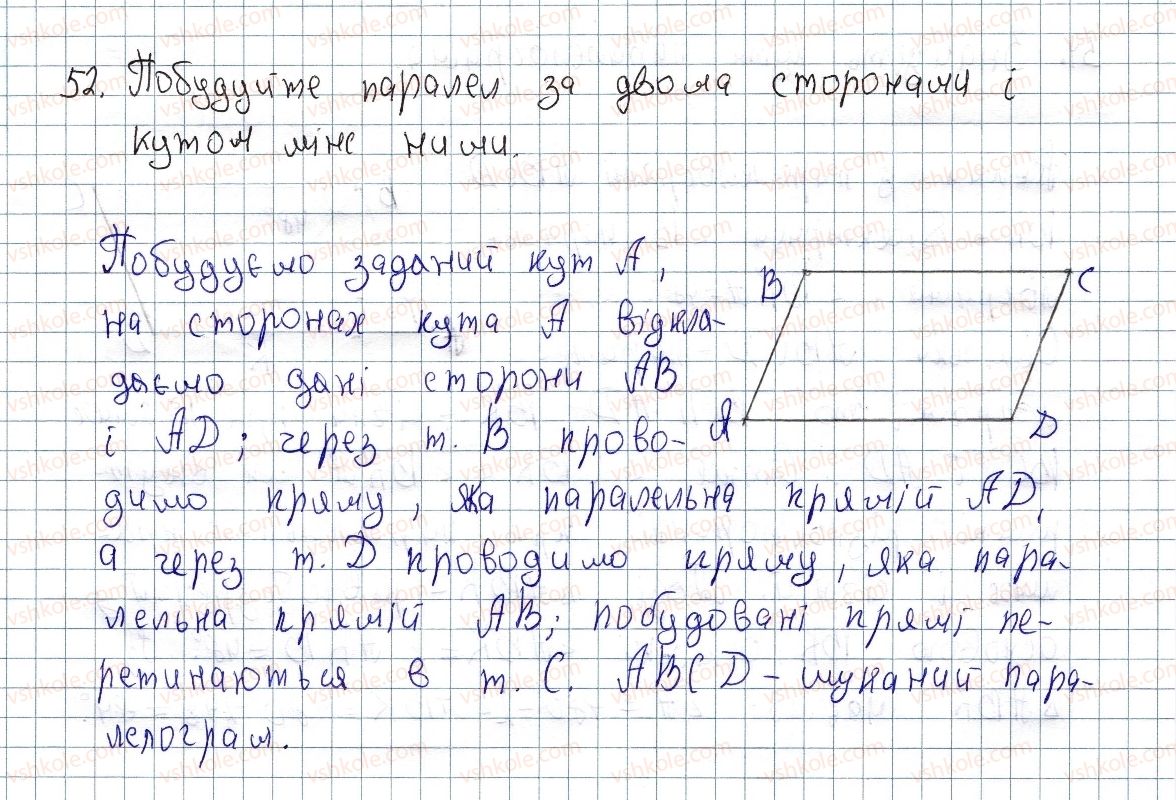 52. Побудуйте паралел за двома сторонами і
кутом між ними.
Побудуємо заданий кут А,
на сторонах кута А відкла-
даємо дані сторони АВ
і АD; через т. В прово-
димо пряму, яка паралельна прямій АD,
а через т. D проводимо пряму, яка пара-
лельна прямій АВ; побудовані прямі пе-
ретинаються в т. С. АВСD - шуканий пара-
лелограм.
В
С
А
D
vshkole.com